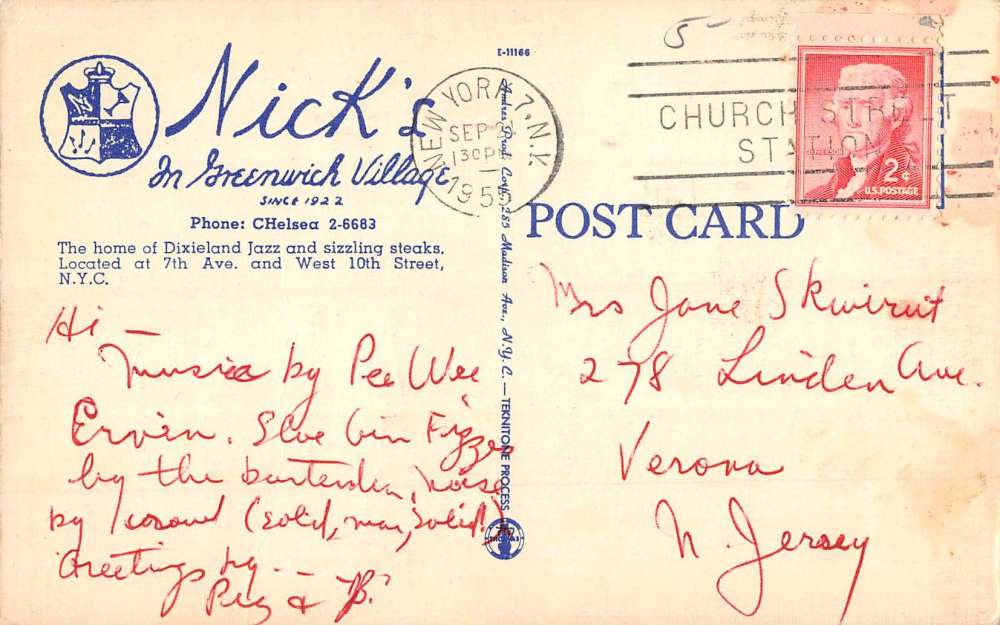 E-11166
Nick's
In Greenwich Village
SINCE 1922
Phone: CHelsea 2-6683
The home of Dixieland Jazz and sizzling steaks.
Located at 7th Ave. and West 10th Street,
N.Y.C.
Hi —
Music by Pee Wee
Ervin. Sloe Gin Fizzes
by the bartender, noise
by crowd (solid, man, solid!)
Greetings by —
Peg & "B."
Prod. Corp., 285 Madison Ave., N.Y.C. — TEKNITONE PROCESS
NEW YORK 7, N.Y.
SEP 2
130 PM
195
CHURCH STREET
STATION
5-
2¢
U.S. POSTAGE
POST CARD
Mrs Jane Skwirut
278 Linden Ave.
Verona
N. Jersey